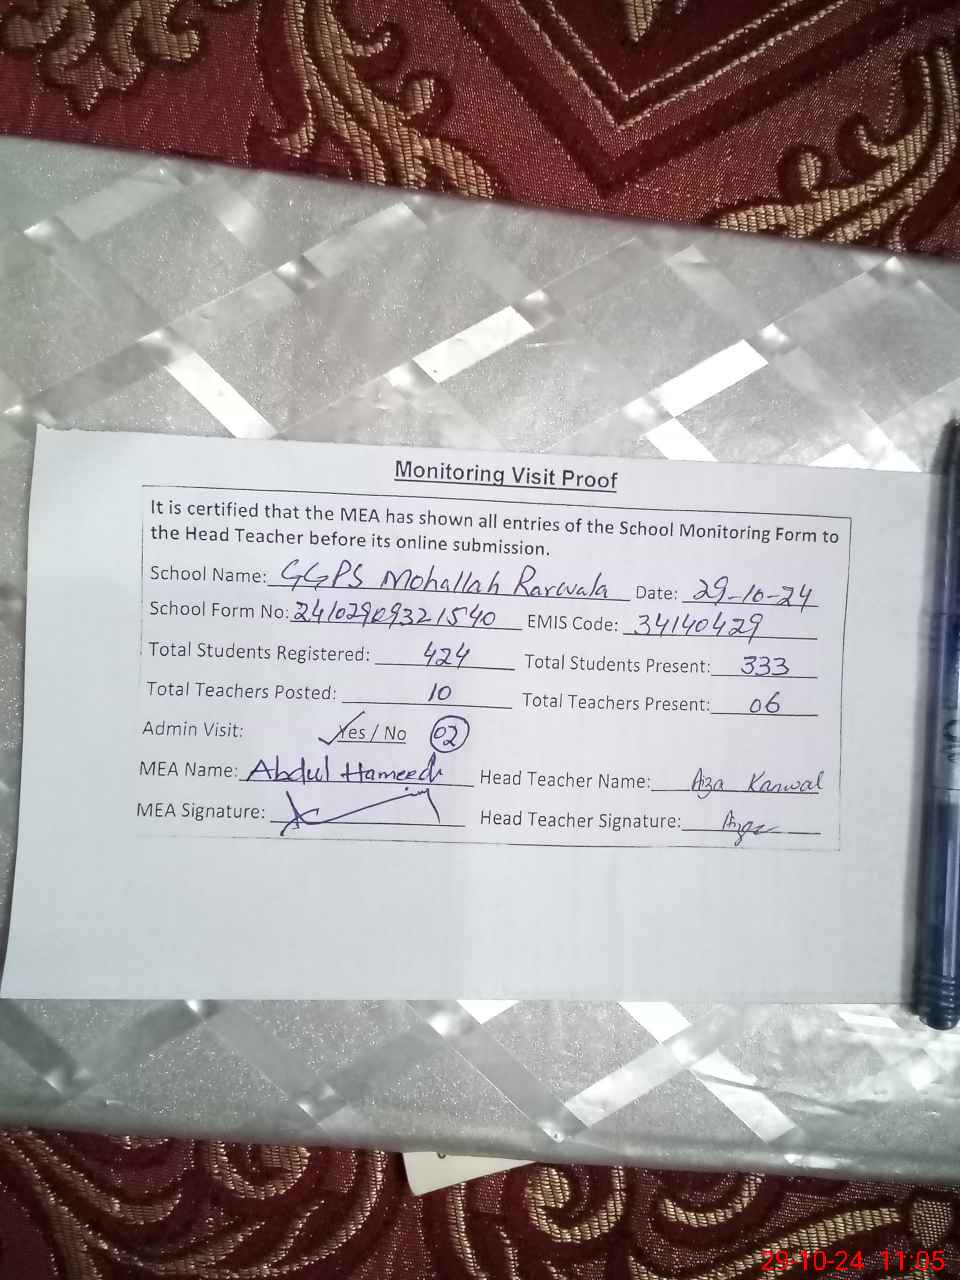 Monitoring Visit Proof
It is certified that the MEA has shown all entries of the School Monitoring Form to
the Head Teacher before its online submission.
School Name: GGPS Mohallah Rarwala Date: 29-10-24
School Form No: 24102909321540 EMIS Code: 34140429
Total Students Registered: 424 Total Students Present: 333
Total Teachers Posted: 10 Total Teachers Present: 06
Admin Visit: Yes / No 02
MEA Name: Abdul Hameed Head Teacher Name: Aiza Kanwal
MEA Signature: Head Teacher Signature: Aiza
29-10-24 11:05